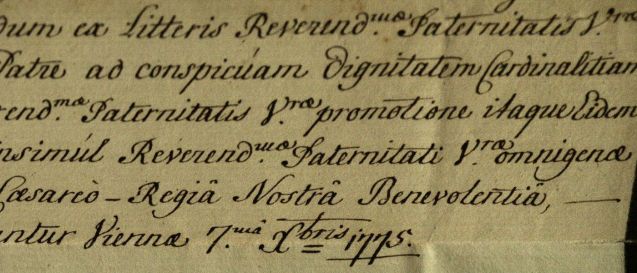 dum ex Litteris Reverend.mæ Paternitatis V.ræ
Patre ad conspicúam dignitatem Cardinalitiam
rend.mæ Paternitatis V.ræ promotione itaque Eidem
insimúl Reverend.mæ Paternitati V.ræ omnigenæ
Cæsareò-Regiâ Nostrâ Benevolentiâ, —
untur Viennæ 7.mâ Xbris 1775.